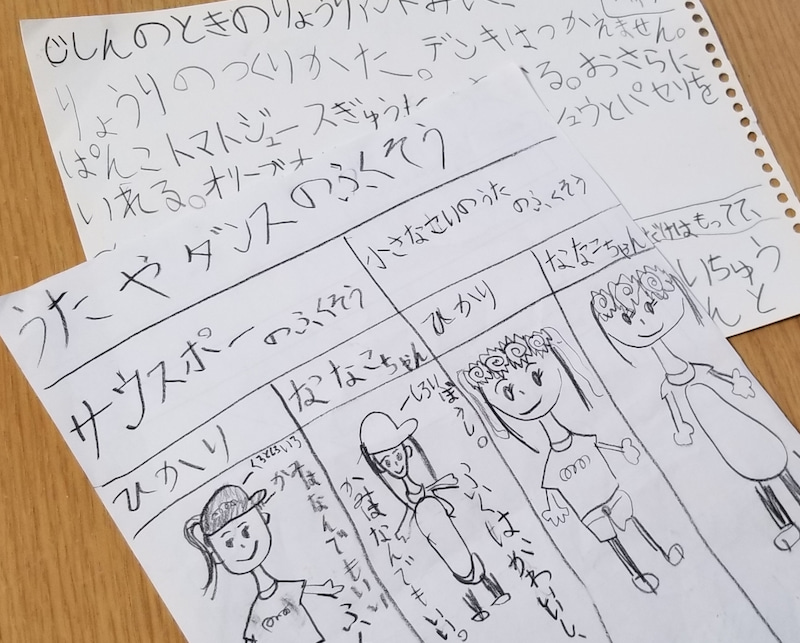 じしんのときのりょうり
りょうりのつくりかた。デンキはつかえません。
ぱんこトマトジュースぎゅうた
る。おさらに
いれる。オリーブオ
ュウとパセリを
うたやダンスのふくそう
サウスポーのふくそう
小さなせいのうた
のふくそう
ひかり
ななこちゃん
ひかり
ななこちゃん
だけはもってて、
いちゅう
んと
かみはなんでもいい
しろいぼうし。
かみはなんでもいい。
ふくは、かわいい